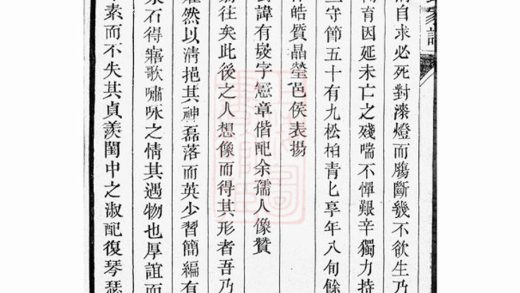 家譜
自求必死對漆燈而腸斷幾不欲生乃
育因延未亡之殘喘不憚艱辛獨力持
守節五十有九松柏青匕享年八旬餘
皓質晶瑩邑侯表揚
諱有字憲章偕配余孺人像贊
往矣此後之人想像而得其形者吾乃
然以清挹其神磊落而英少習簡編有
石得寤歌嘯咏之情其遇物也厚誼而
素而不失其貞羨閨中之淑配復琴瑟